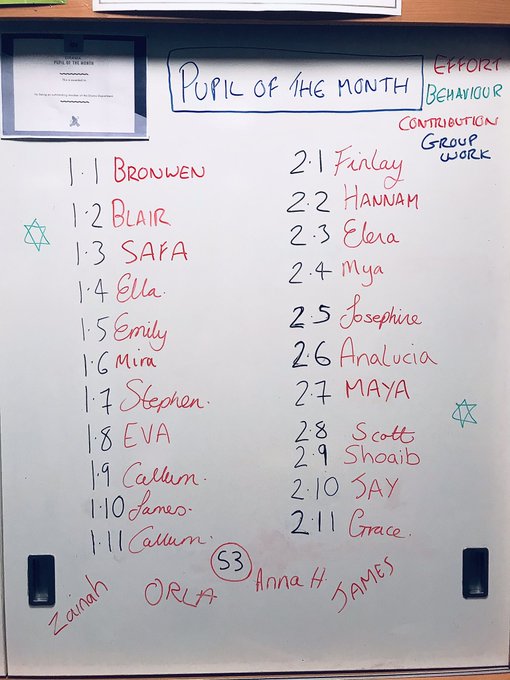 PUPIL OF THE MONTH
PUPIL OF THE MONTH
EFFORT
BEHAVIOUR
CONTRIBUTION
GROUP
WORK
1.1 BRONWEN
1.2 BLAIR
1.3 SAFA
1.4 Ella.
1.5 Emily
1.6 Mira
1.7 Stephen.
1.8 EVA
1.9 Callum.
1.10 James.
1.11 Callum.
2.1 Finlay
2.2 HANNAM
2.3 Elena
2.4 Mya
2.5 Josephine
2.6 Analucia
2.7 MAYA
2.8 Scott
2.9 Shoaib
2.10 JAY
2.11 Grace.
S3
Zainah ORLA Anna H. JAMES